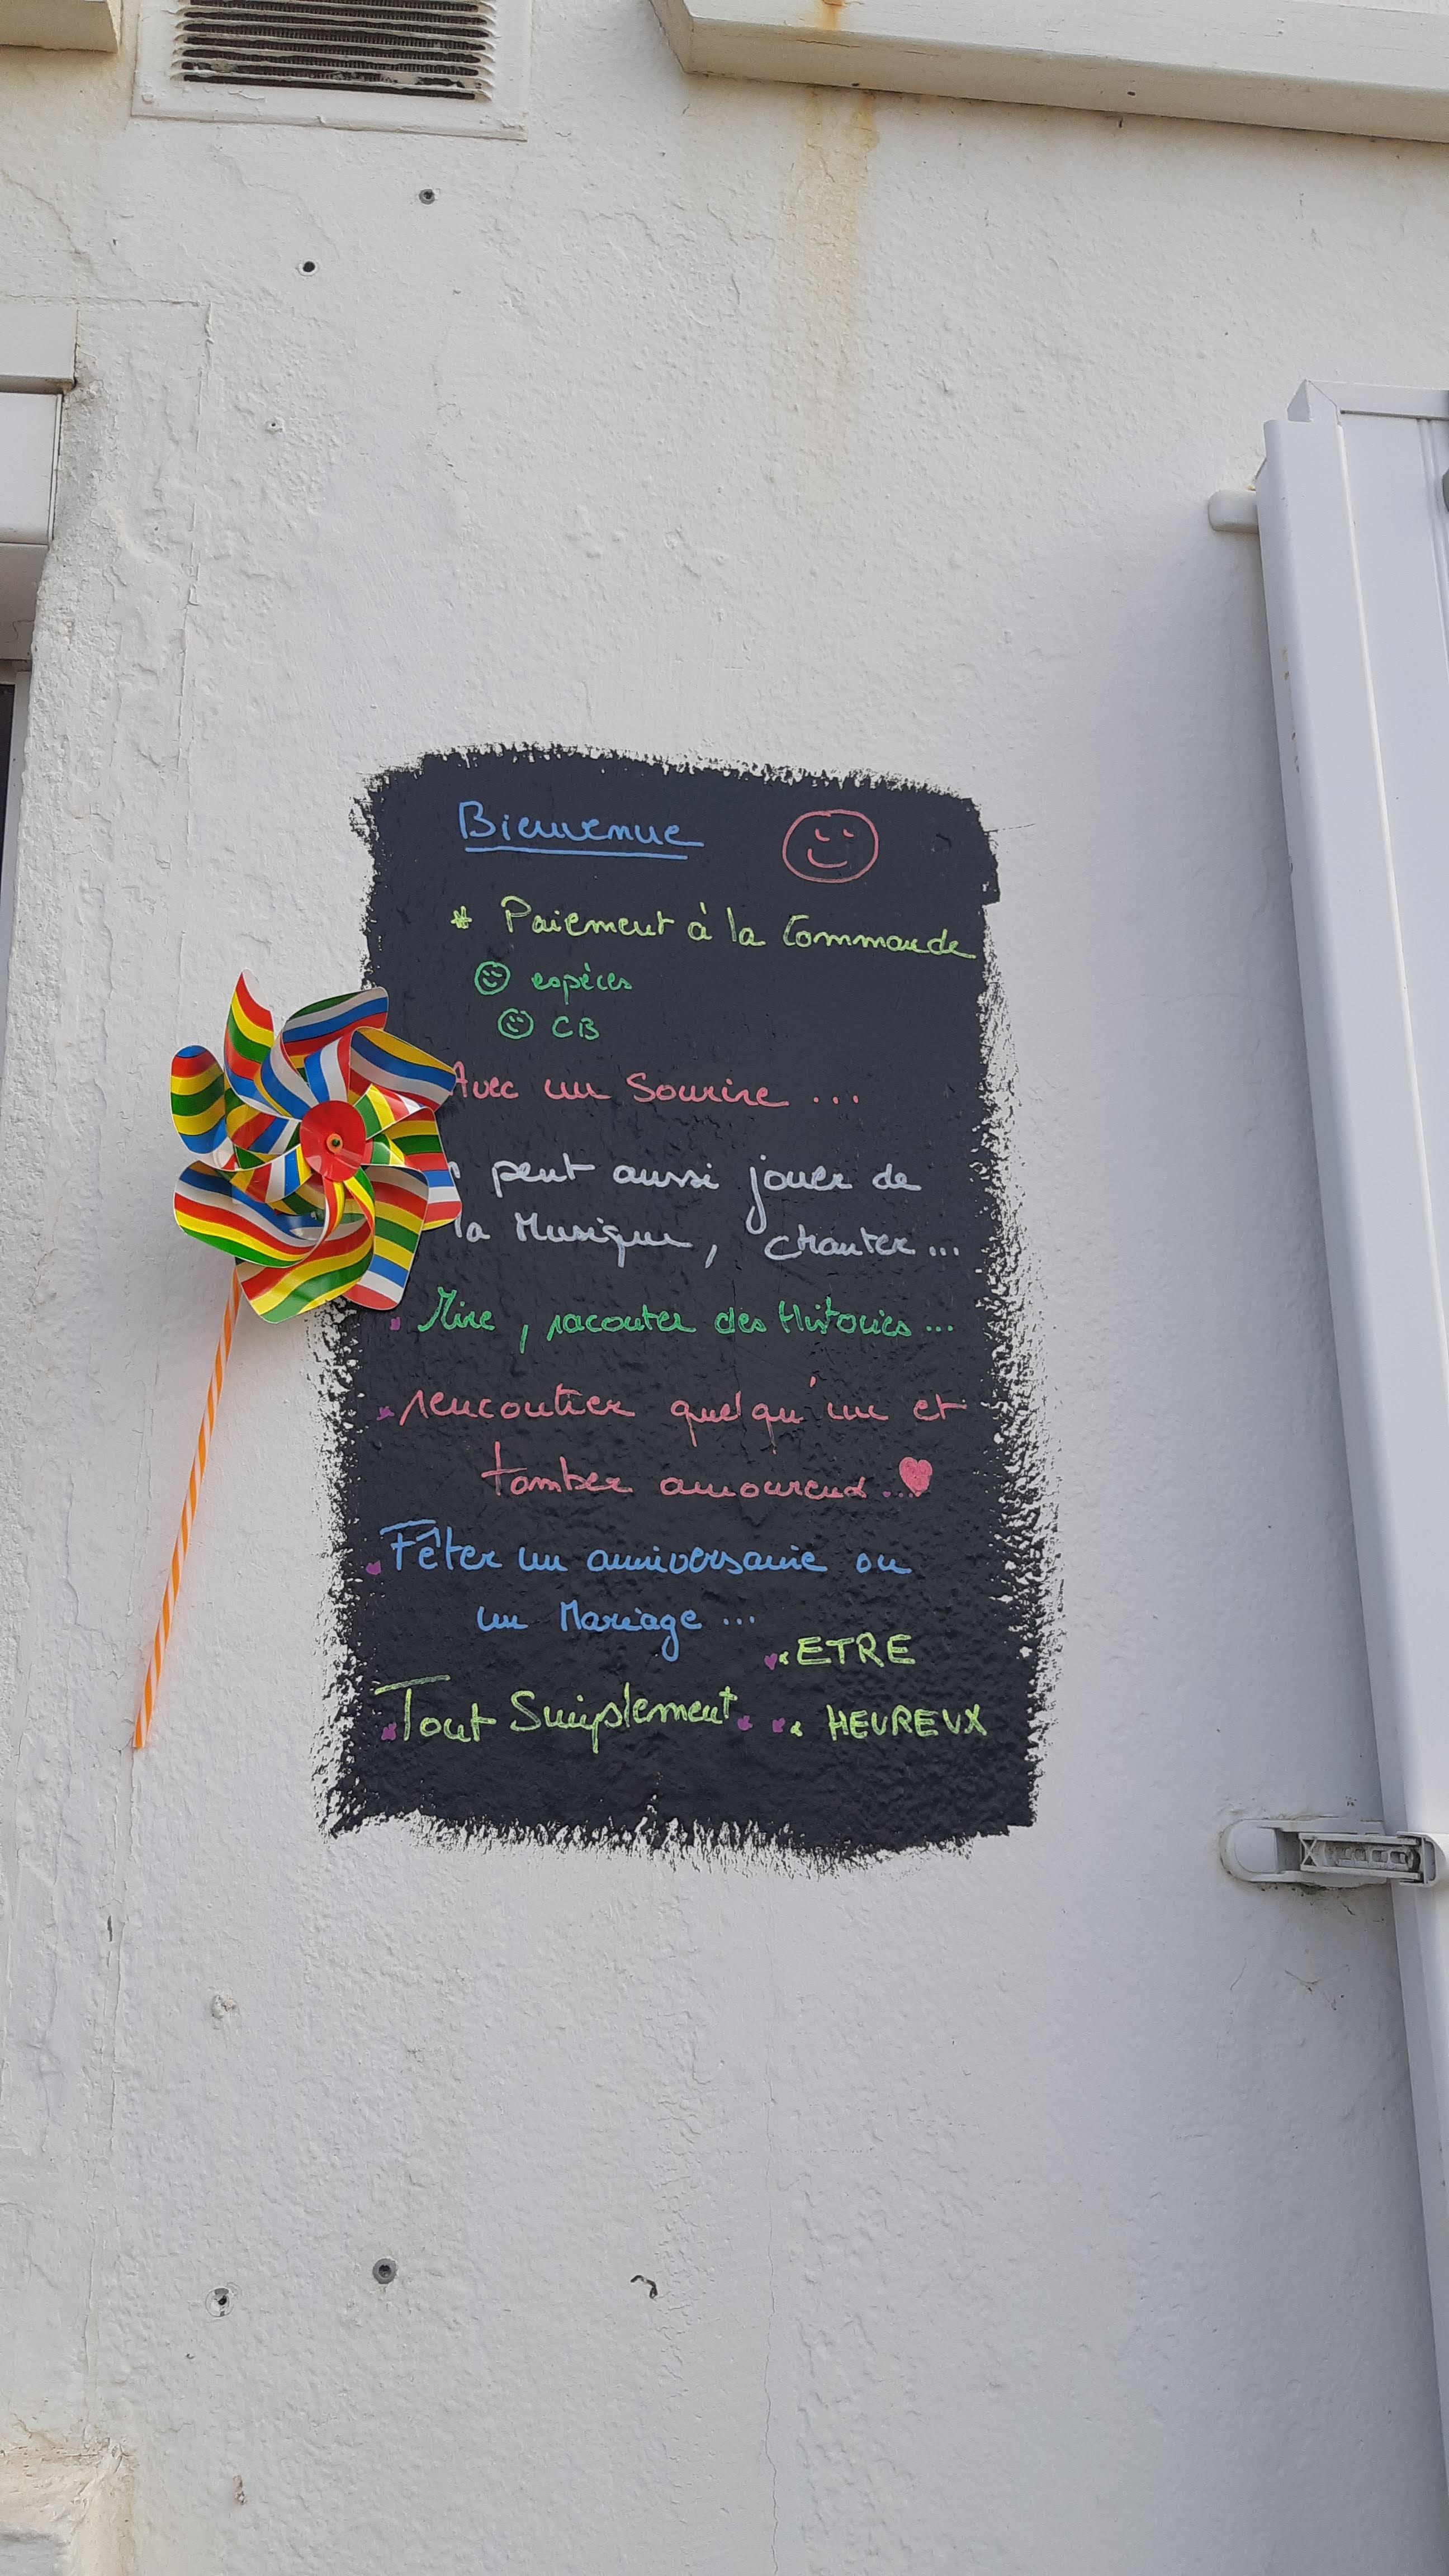 Bienvenue
* Paiement à la Commande
espèces
CB
Avec un Sourire ...
peut aussi jouer de
la Musique, chanter...
Rire, raconter des Histoires...
rencontrer quelqu'un et
tomber amoureux...
Fêter un anniversaire ou
un Mariage ...
ETRE
Tout Simplement... HEUREUX